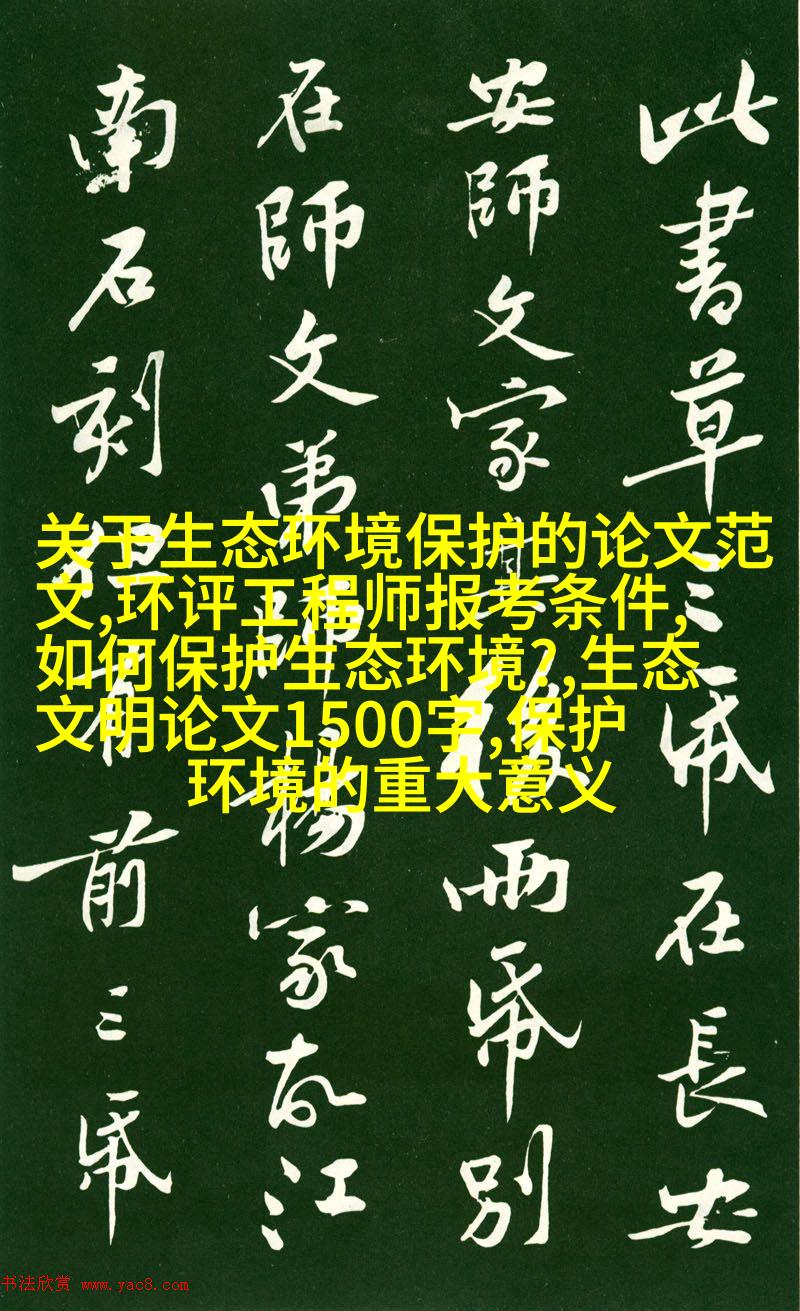 此書草三帋在長安
安師文家其後兩帋別
在師文弟師楊家故江
南石刻有前三帋
关于生态环境保护的论文范
文,环评工程师报考条件,
如何保护生态环境?,生态
文明论文1500字,保护
环境的重大意义
书法欣赏 www.yac8.com